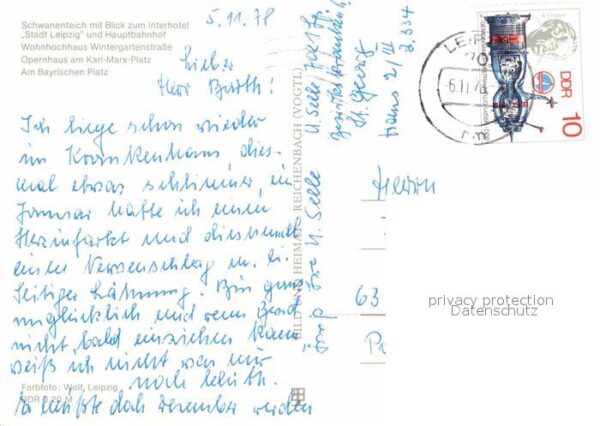 Schwanenteich mit Blick zum Interhotel
„Stadt Leipzig" und Hauptbahnhof
Wohnhochhaus Wintergartenstraße
Opernhaus am Karl-Marx-Platz
Am Bayrischen Platz
5.11.78
Lieber
Herr Barth!
Ich liege schon wieder
im Krankenhaus, dies-
mal etwas schlimmer, im
Januar hatte ich einen
Herzinfarkt und diesmal
einen Nervenschlag m. li.
seitiger Lähmung. Bin ganz
unglücklich und wenn Gerd
nicht bald einziehen kann
weiß ich nicht was mir
noch
Es müßte doch Dezember werden
Farbfoto: Wolf, Leipzig
DDR 0,20 M
BILD UND HEIMAT REICHENBACH (VOGTL)
Ihre U. Seele
U. Seele
St. Georg
Haus 2/III
Z. 334
LEIPZIG
70
-6.11.78
DDR
10
Herrn
63
privacy protection
Datenschutz